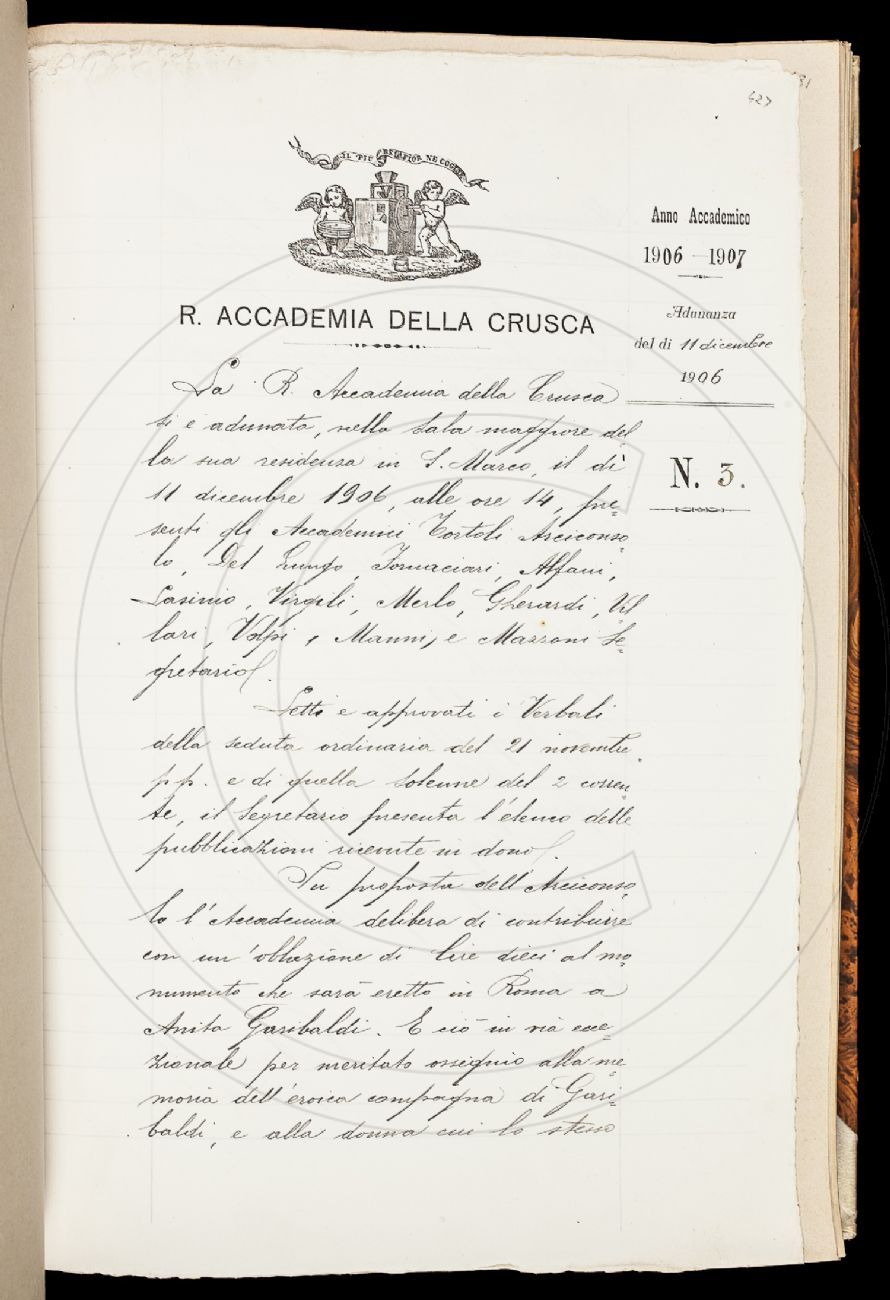 427
IL PIÙ BEL FIOR NE COGLIE
Anno Accademico
1906-1907
Adunanza
del dì 11 dicembre
1906
N. 3.
R. ACCADEMIA DELLA CRUSCA
La R. Accademia della Crusca
si è adunata, nella Sala maggiore del
la sua residenza in S. Marco, il dì
11 dicembre 1906, alle ore 14, pre=
senti gli Accademici Tortoli Arciconso
lo, Del Lungo, Fornaciari, Alfani,
Lasinio, Virgili, Merlo, Gherardi, Vil
lari, Volpi, Manni, e Mazzoni Se=
gretario.
Letti e approvati i Verbali
della seduta ordinaria del 21 novembre
pp. e di quella solenne del 2 corren
te, il Segretario presenta l'elenco delle
pubblicazioni ricevute in dono.
Su proposta dell'Arciconso
lo l'Accademia delibera di contribuire
con un'oblazione di lire dieci al mo
numento che sarà eretto in Roma a
Anita Garibaldi. E ciò in via ecce=
zionale per meritato ossequio alla me=
moria dell'eroica compagna di Gari=
baldi, e alla donna cui lo stesso